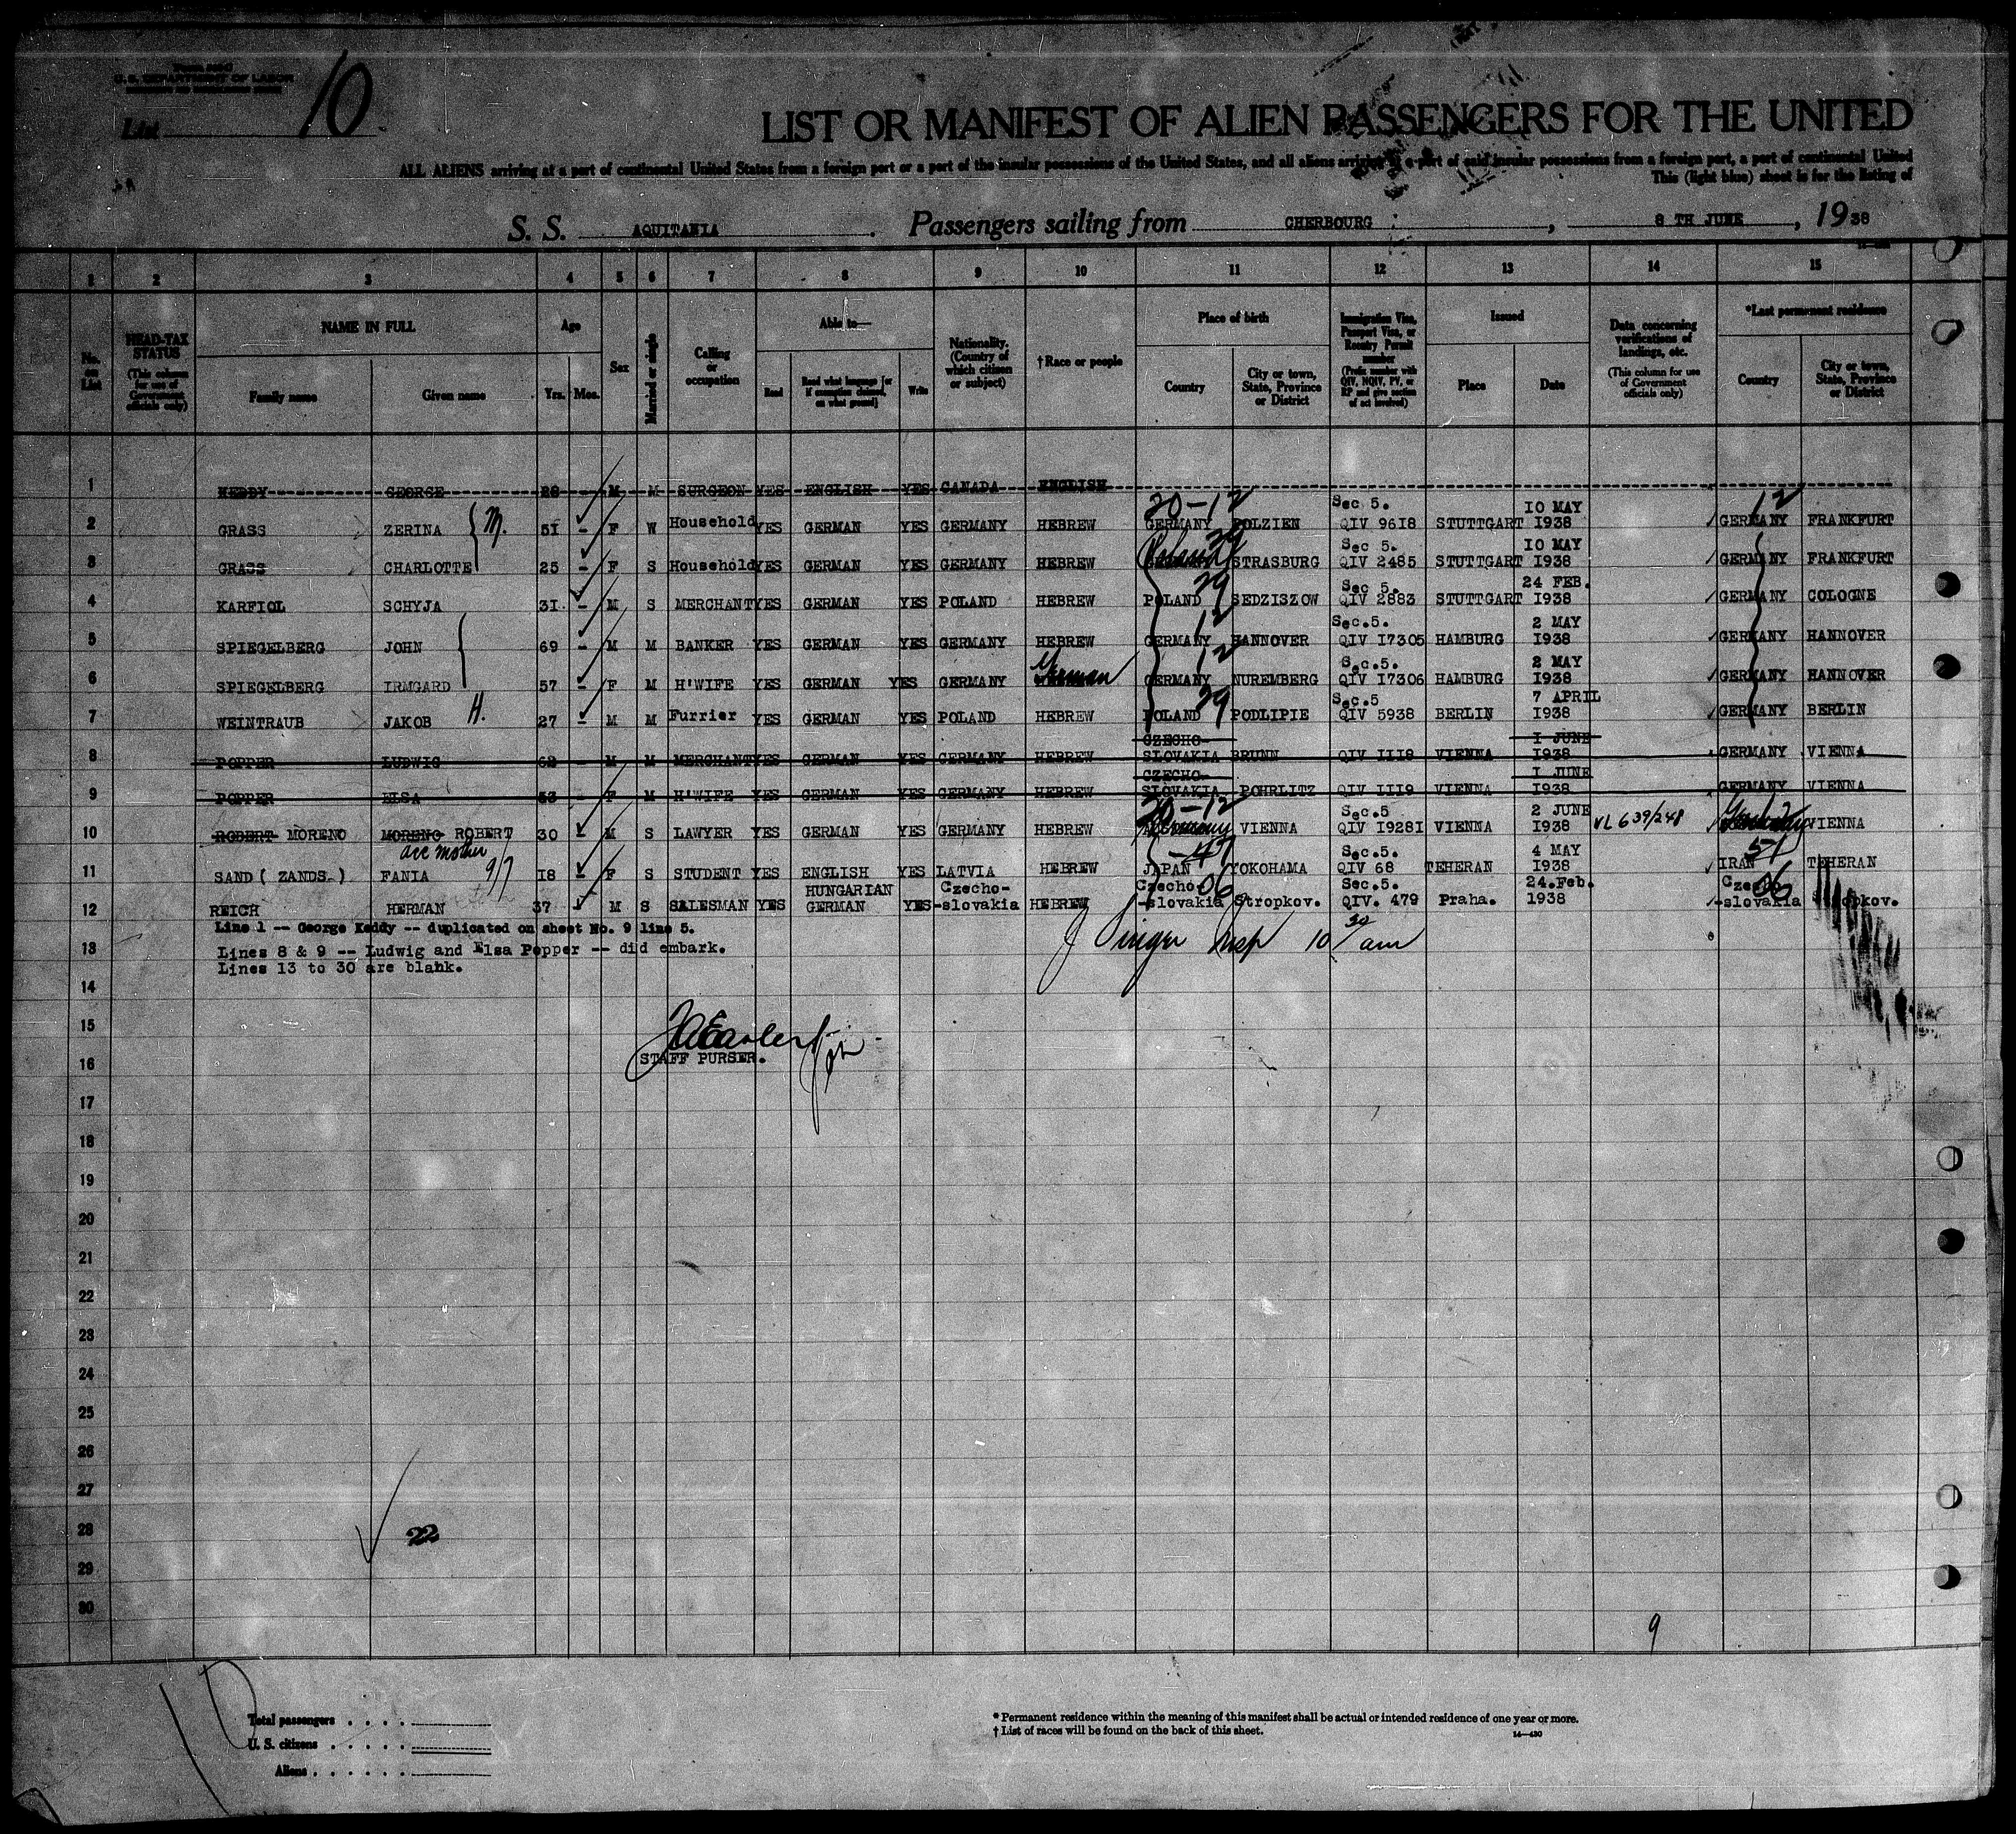 U.S. DEPARTMENT OF LABOR
List 10
LIST OR MANIFEST OF ALIEN PASSENGERS FOR THE UNITED
ALL ALIENS arriving at a port of continental United States from a foreign port or a port of the insular possessions of the United States, and all aliens arriving at a port of said insular possessions from a foreign port, a port of continental United
This (light blue) sheet is for the listing of
S. S. AQUITANIA. Passengers sailing from CHERBOURG, 8 TH JUNE, 1938
1 2 3 4 5 6 7 8 9 10 11 12 13 14 15
No. on List
HEAD-TAX STATUS (This column for use of Government officials only)
NAME IN FULL Family name Given name
Age Yrs. Mos.
Sex
Married or single
Calling or occupation
Able to— Read Read what language [or if exemption claimed, on what ground] Write
Nationality. (Country of which citizen or subject)
†Race or people
Place of birth Country City or town, State, Province or District
Immigration Visa, Passport Visa, or Reentry Permit number (Prefix number with QIV, NQIV, PV, or RP and give section of act involved)
Issued Place Date
Data concerning verifications of landings, etc. (This column for use of Government officials only)
*Last permanent residence Country City or town, State, Province or District
1 KEDDY GEORGE 28 M M SURGEON YES ENGLISH YES CANADA ENGLISH
20-12 Sec 5. 10 MAY 12
2 GRASS ZERINA M. 51 - F W Household YES GERMAN YES GERMANY HEBREW GERMANY POLZIEN QIV 9618 STUTTGART 1938 GERMANY FRANKFURT
29 Sec 5. 10 MAY
3 GRASS CHARLOTTE 25 - F S Household YES GERMAN YES GERMANY HEBREW STRASBURG QIV 2485 STUTTGART 1938 GERMANY FRANKFURT
29 Sec 5. 24 FEB.
4 KARFIOL SCHYJA 31 - M S MERCHANT YES GERMAN YES POLAND HEBREW POLAND SEDZISZOW QIV 2883 STUTTGART 1938 GERMANY COLOGNE
12 Sec.5. 2 MAY
5 SPIEGELBERG JOHN 69 - M M BANKER YES GERMAN YES GERMANY HEBREW GERMANY HANNOVER QIV 17305 HAMBURG 1938 GERMANY HANNOVER
12 Sec.5. 2 MAY
6 SPIEGELBERG IRMGARD 57 - F M H'WIFE YES GERMAN YES GERMANY German GERMANY NUREMBERG QIV 17306 HAMBURG 1938 GERMANY HANNOVER
29 Sec.5 7 APRIL
7 WEINTRAUB JAKOB H. 27 - M M Furrier YES GERMAN YES POLAND HEBREW POLAND PODLIPIE QIV 5938 BERLIN 1938 GERMANY BERLIN
CZECHO- 1 JUNE
8 POPPER LUDWIG 62 - M M MERCHANT YES GERMAN YES GERMANY HEBREW SLOVAKIA BRUNN QIV 1118 VIENNA 1938 GERMANY VIENNA
CZECHO- 1 JUNE
9 POPPER ELSA 53 - F M H'WIFE YES GERMAN YES GERMANY HEBREW SLOVAKIA POHRLITZ QIV 1119 VIENNA 1938 GERMANY VIENNA
20-12 Sec.5 2 JUNE
10 ROBERT MORENO MORENO ROBERT 30 M S LAWYER YES GERMAN YES GERMANY HEBREW Germany VIENNA QIV 19281 VIENNA 1938 VL 639/248 VIENNA
acc mother 47 Sec.5. 4 MAY 51
11 SAND ( ZANDS-) FANIA 9/7 18 F S STUDENT YES ENGLISH YES LATVIA HEBREW JAPAN YOKOHAMA QIV 68 TEHERAN 1938 IRAN TEHERAN
HUNGARIAN Czecho- Czecho- 06 Sec.5. 24.Feb. Czecho- 06
12 REICH HERMAN 37 M S SALESMAN YES GERMAN YES -slovakia HEBREW -slovakia Stropkov. QIV. 479 Praha. 1938 -slovakia Stropkov.
Line 1 -- George Keddy -- duplicated on sheet No. 9 line 5.
13 Lines 8 & 9 -- Ludwig and Elsa Popper -- did embark.
Lines 13 to 30 are blank.
J Singer Insp 10 30 am
14
15
STAFF PURSER.
16
17
18
19
20
21
22
23
24
25
26
27
28 22
29
30
9
10
Total passengers
U. S. citizens
Aliens
* Permanent residence within the meaning of this manifest shall be actual or intended residence of one year or more.
† List of races will be found on the back of this sheet.
14—430